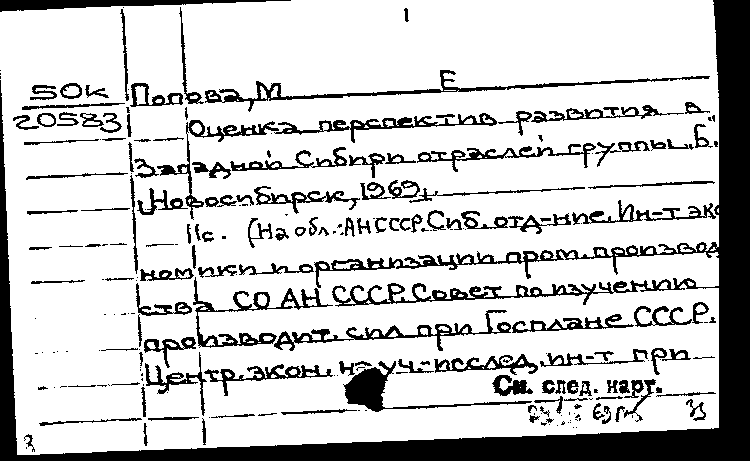 1
50к Попова, М Е
20583 Оценка перспектив развития в
Западной Сибири отраслей группы „Б".
Новосибирск, 1969г.
11с. (На обл.: АН СССР. Сиб. отд-ние. Ин-т эко
номики и организации пром. производ
ства СО АН СССР. Совет по изучению
производит. сил при Госплане СССР.
Центр. экон. науч.-исслед. ин-т при
См. след. карт.